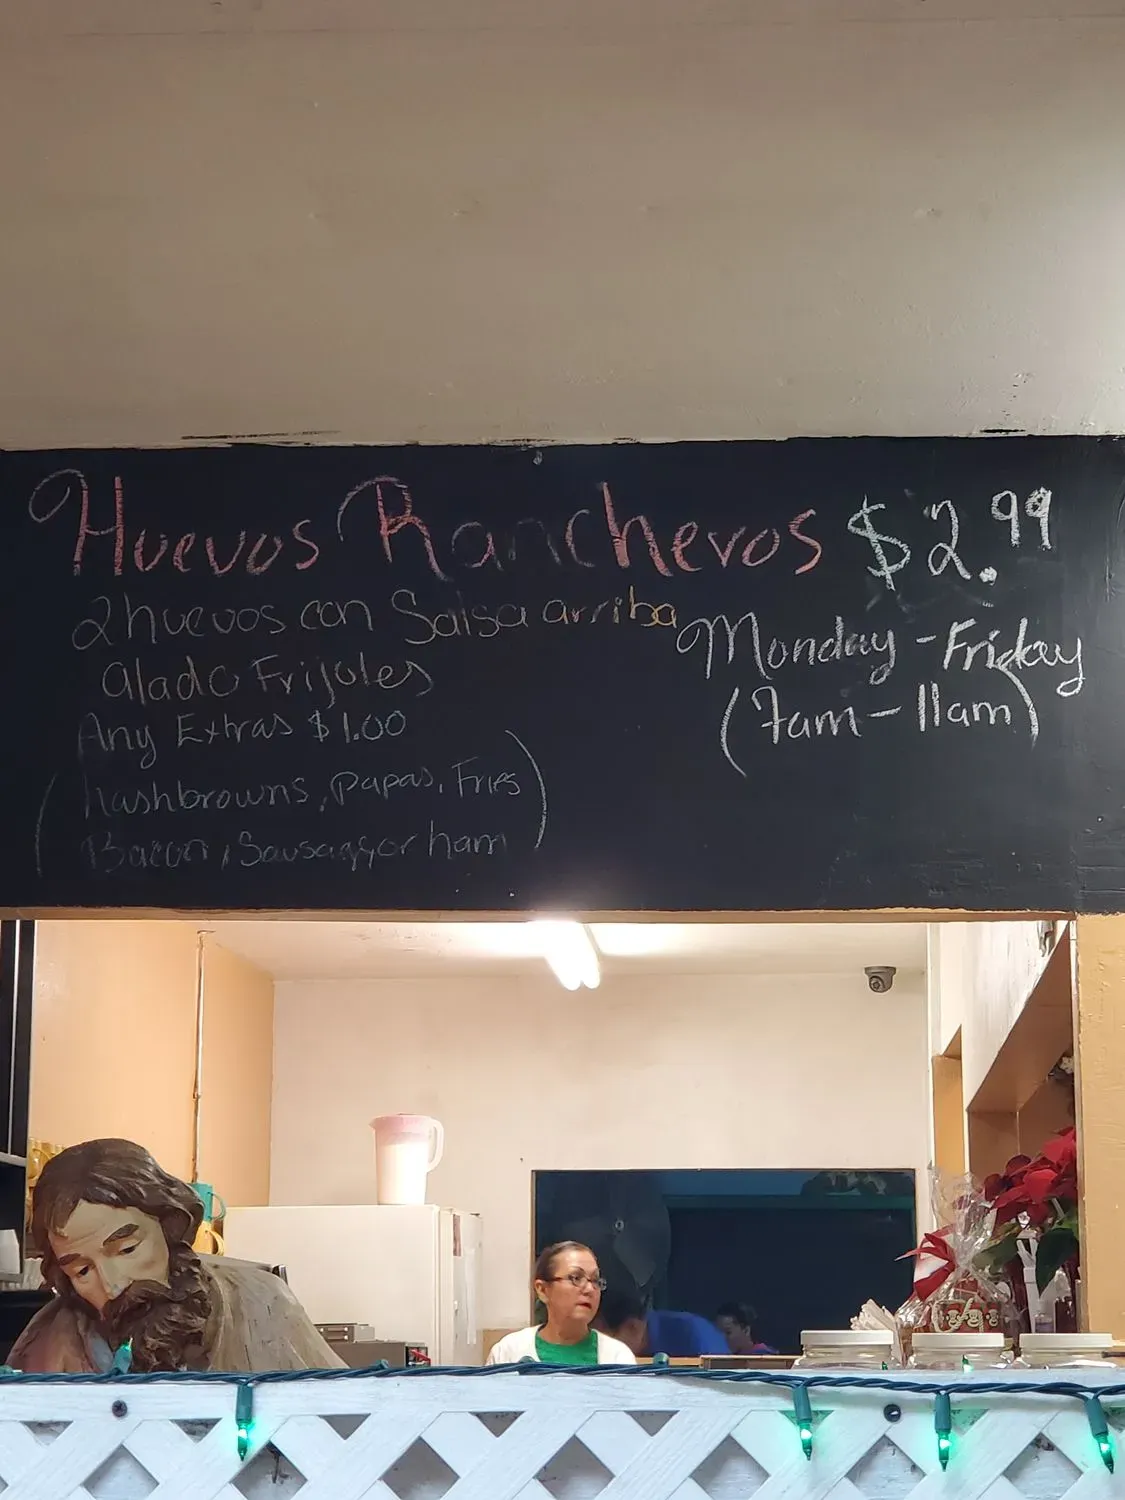 Huevos Rancheros $2.99
2 huevos con Salsa arriba
alado Frijoles
Any Extras $1.00
(hashbrowns, papas, Fries
Bacon, Sausage, or ham)
Monday - Friday
(7am - 11am)